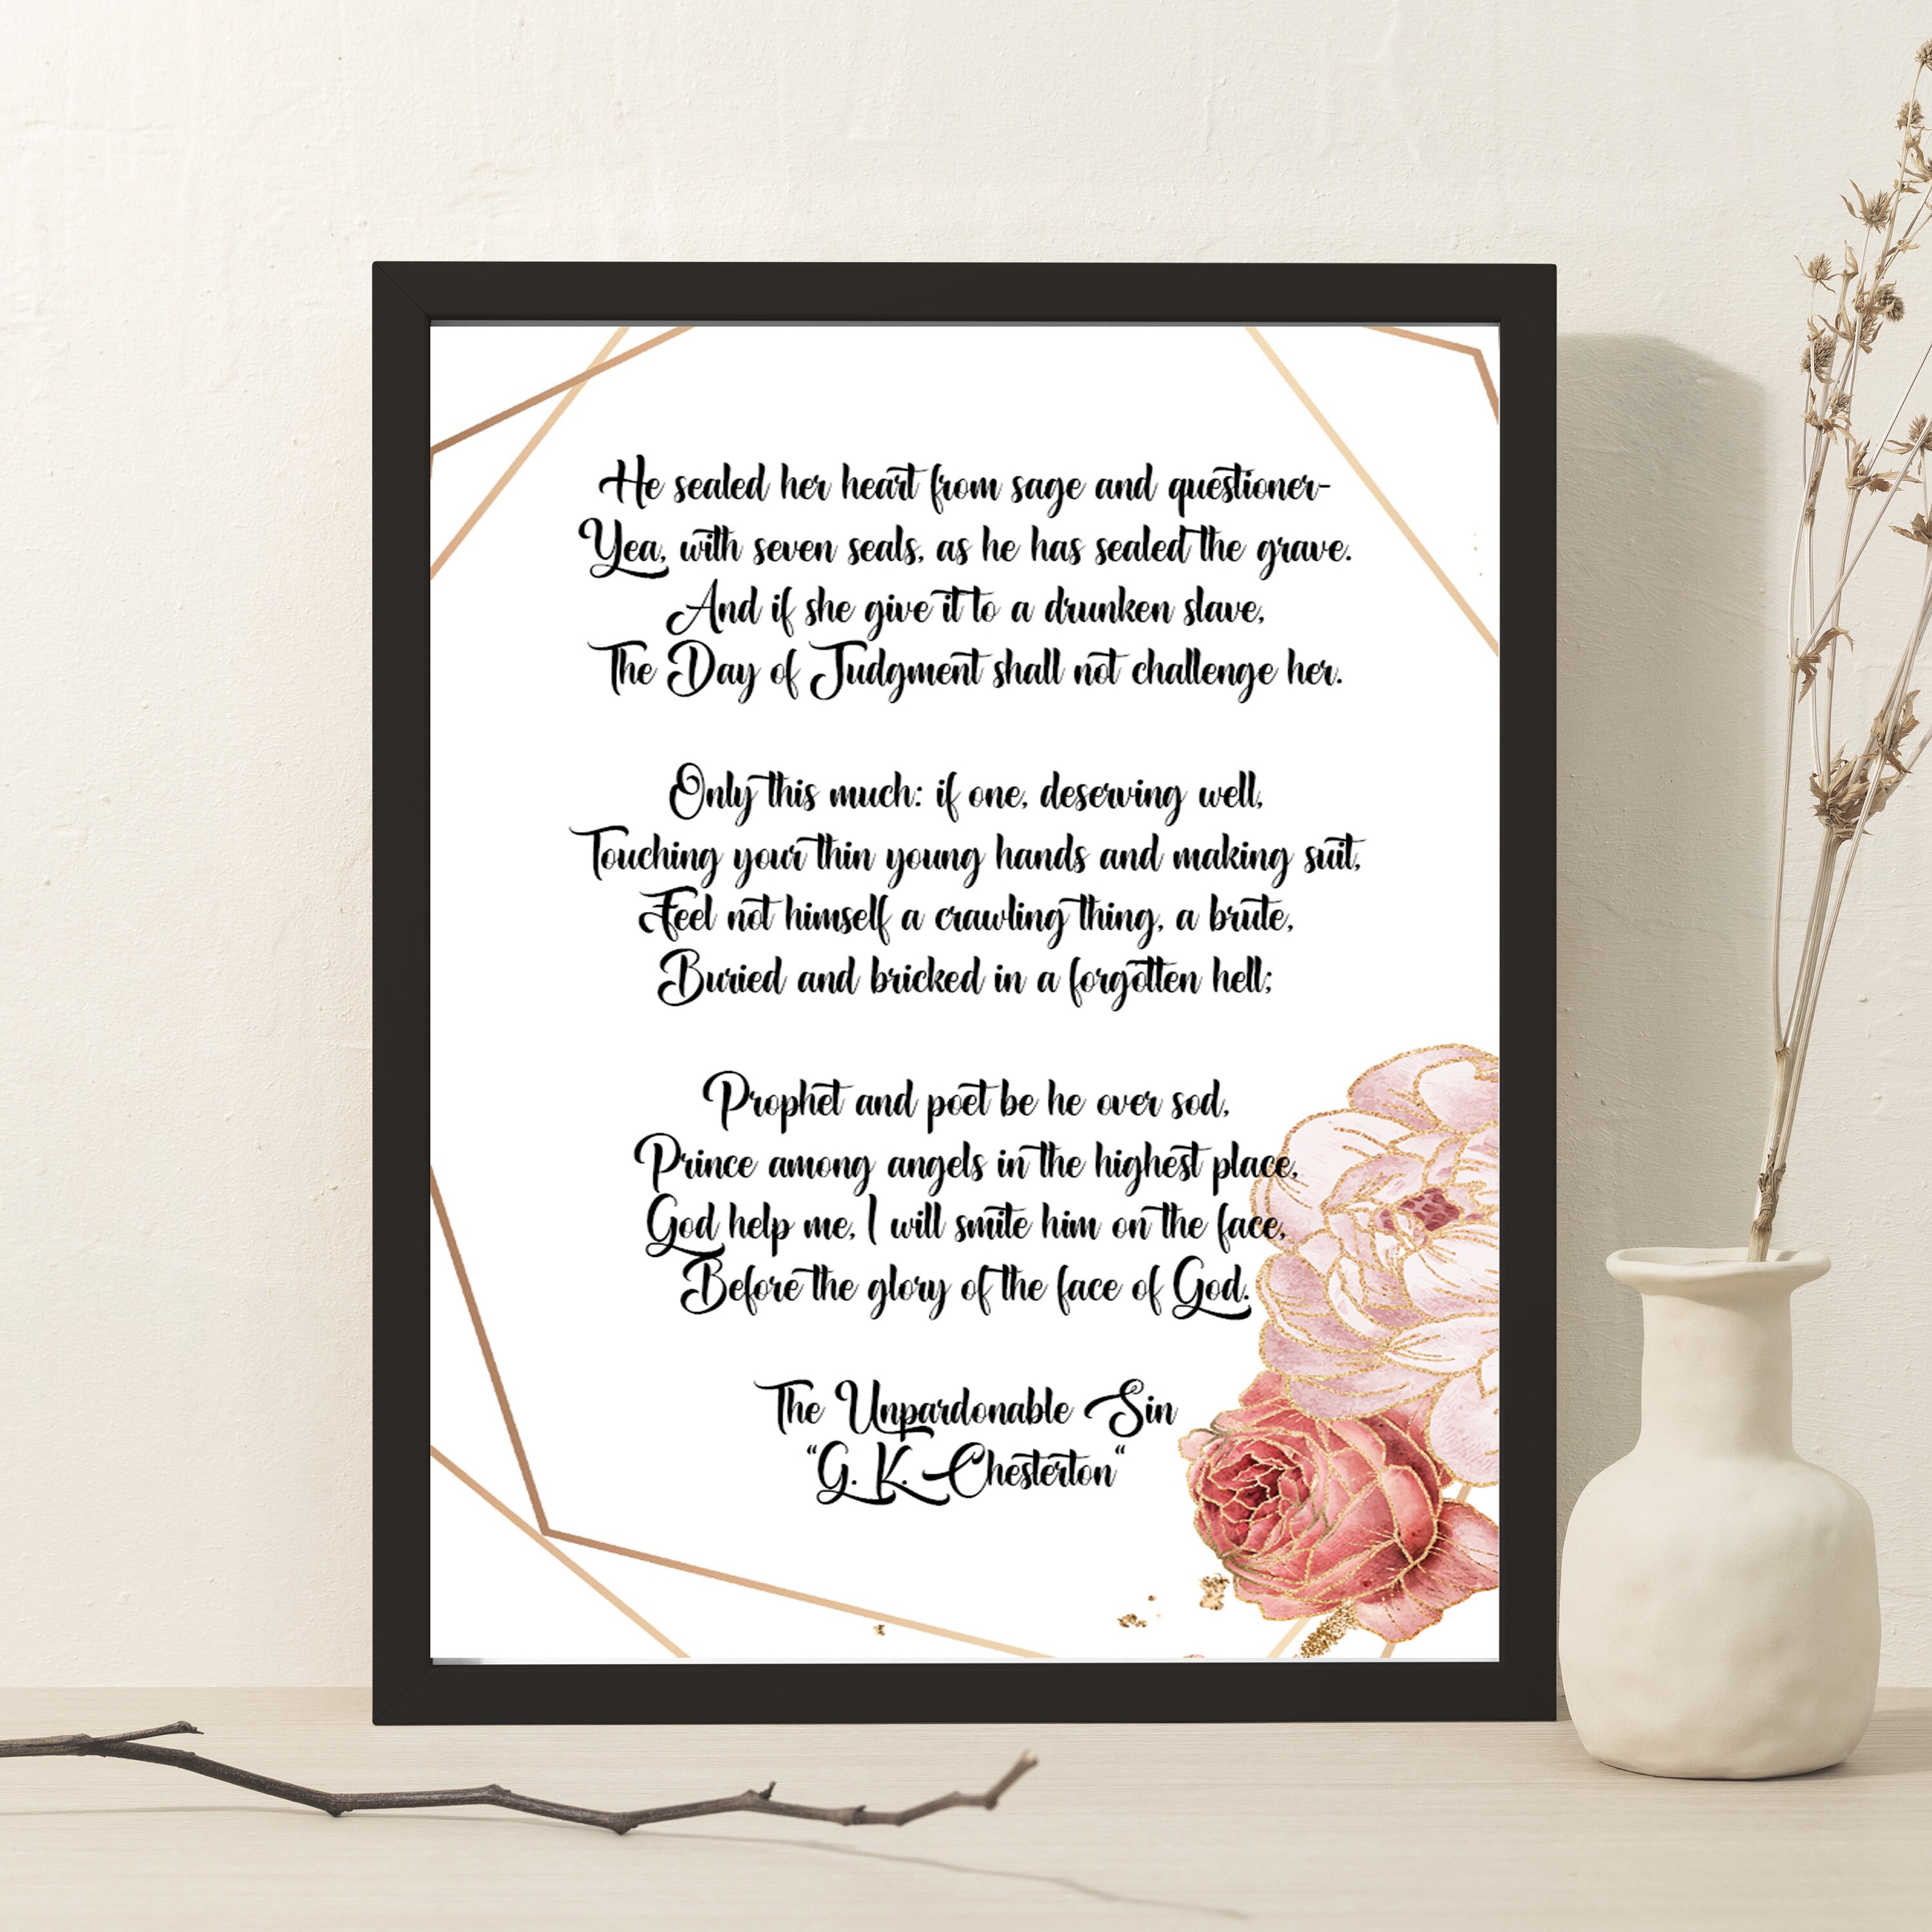 He sealed her heart from sage and questioner-
Yea, with seven seals, as he has sealed the grave.
And if she give it to a drunken slave,
The Day of Judgment shall not challenge her.
Only this much: if one, deserving well,
Touching your thin young hands and making suit,
Feel not himself a crawling thing, a brute,
Buried and bricked in a forgotten hell;
Prophet and poet be he over sod,
Prince among angels in the highest place,
God help me, I will smite him on the face,
Before the glory of the face of God.
The Unpardonable Sin
“G. K. Chesterton“